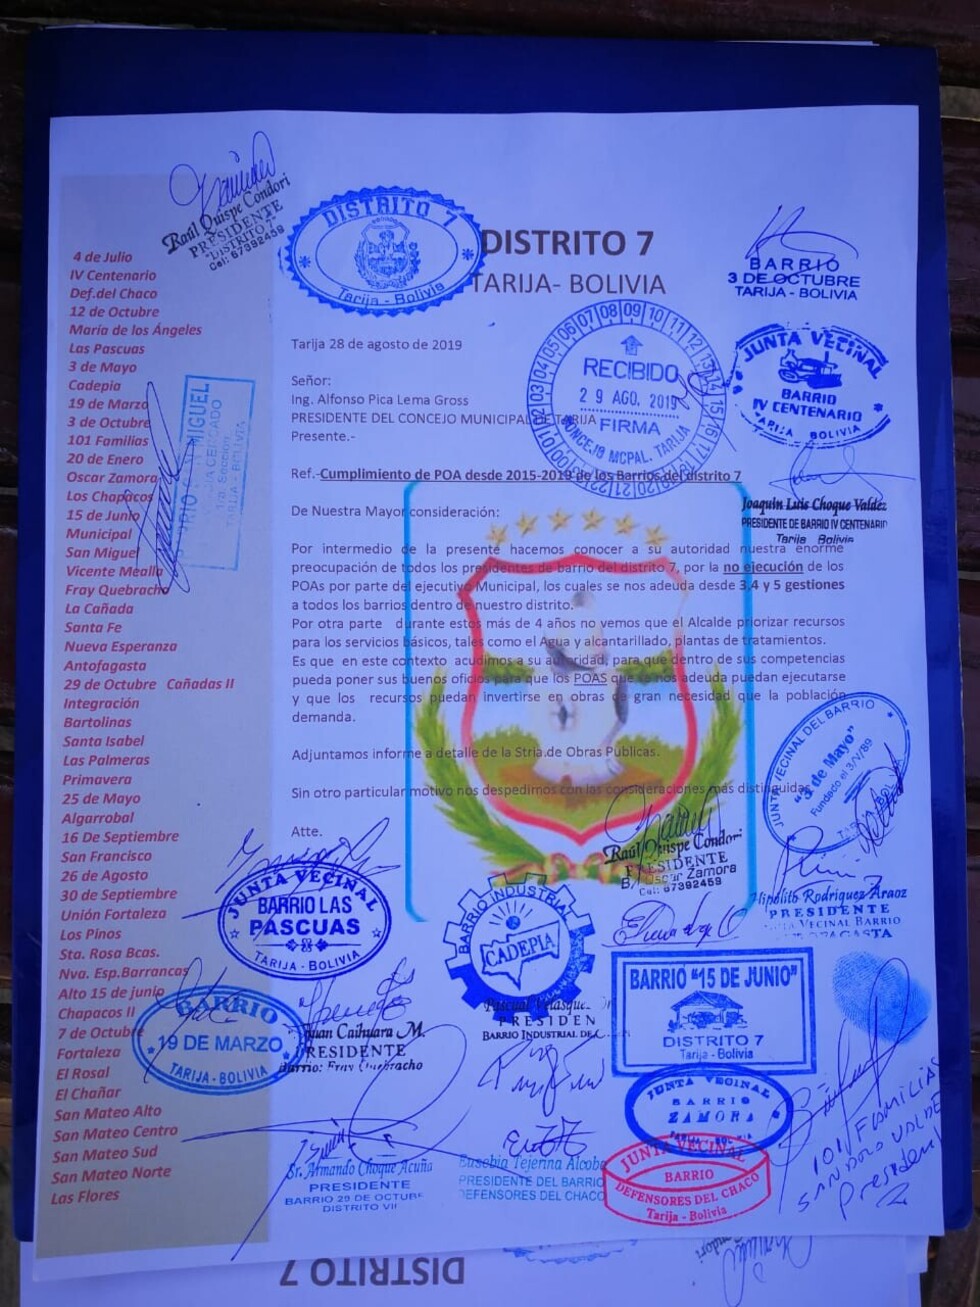 4 de Julio
IV Centenario
Def.del Chaco
12 de Octubre
María de los Ángeles
Las Pascuas
3 de Mayo
Cadepia
19 de Marzo
3 de Octubre
101 Familias
20 de Enero
Oscar Zamora
Los Chapacos
15 de Junio
Municipal
San Miguel
Vicente Mealla
Fray Quebracho
La Cañada
Santa Fe
Nueva Esperanza
Antofagasta
29 de Octubre Cañadas II
Integración
Bartolinas
Santa Isabel
Las Palmeras
Primavera
25 de Mayo
Algarrobal
16 De Septiembre
San Francisco
26 de Agosto
30 de Septiembre
Unión Fortaleza
Los Pinos
Sta. Rosa Bcas.
Nva. Esp.Barrancas
Alto 15 de junio
Chapacos II
7 de Octubre
Fortaleza
El Rosal
El Chañar
San Mateo Alto
San Mateo Centro
San Mateo Sud
San Mateo Norte
Las Flores
Raúl Quispe Condori
PRESIDENTE
"DISTRITO 7"
Cel: 67392459
DISTRITO 7
Tarija - Bolivia
DISTRITO 7
TARIJA- BOLIVIA
BARRIO
3 DE OCTUBRE
TARIJA - BOLIVIA
Tarija 28 de agosto de 2019
Señor:
Ing. Alfonso Pica Lema Gross
PRESIDENTE DEL CONCEJO MUNICIPAL DE TARIJA
Presente.-
RECIBIDO
29 AGO. 2019
FIRMA
CONCEJO MCPAL. TARIJA
JUNTA VECINAL
BARRIO
IV CENTENARIO
TARIJA BOLIVIA
Ref.-Cumplimiento de POA desde 2015-2019 de los Barrios del distrito 7
De Nuestra Mayor consideración:
Joaquin Luis Choque Valdez
PRESIDENTE DE BARRIO IV CENTENARIO
Tarija Bolivia
Por intermedio de la presente hacemos conocer a su autoridad nuestra enorme
preocupación de todos los presidentes de barrio del distrito 7, por la no ejecución de los
POAs por parte del ejecutivo Municipal, los cuales se nos adeuda desde 3,4 y 5 gestiones
a todos los barrios dentro de nuestro distrito.
Por otra parte durante estos más de 4 años no vemos que el Alcalde priorizar recursos
para los servicios básicos, tales como el Agua y alcantarillado, plantas de tratamientos.
Es que en este contexto acudimos a su autoridad, para que dentro de sus competencias
pueda poner sus buenos oficios para que los POAS que se nos adeuda puedan ejecutarse
y que los recursos puedan invertirse en obras de gran necesidad que la población
demanda.
Adjuntamos informe a detalle de la Stria.de Obras Públicas.
Sin otro particular motivo nos despedimos con las consideraciones más distinguidas.
Atte.
JUNTA VECINAL DEL BARRIO
"3 de Mayo"
Fundado el 3/V/89
Raúl Quispe Condori
PRESIDENTE
B/. Oscar Zamora
Cel: 67392459
Hipólito Rodriguez Araoz
PRESIDENTE
JUNTA VECINAL BARRIO
JUNTA VECINAL
BARRIO LAS
PASCUAS
TARIJA - BOLIVIA
BARRIO INDUSTRIAL
CADEPIA
PRESIDEN
BARRIO INDUSTRIAL DE
BARRIO "15 DE JUNIO"
DISTRITO 7
Tarija - Bolivia
BARRIO
19 DE MARZO
TARIJA - BOLIVIA
Juan Caihuara M.
PRESIDENTE
Barrio: Fray Quebracho
JUNTA VECINAL
BARRIO
ZAMORA
101 FAMILIAS
Presidente
Sr. Armando Choque Acuña
PRESIDENTE
BARRIO 29 DE OCTUBRE
DISTRITO VII
Eusebia Tejerina Alcoba
PRESIDENTE DEL BARRIO
DEFENSORES DEL CHACO
JUNTA VECINAL
BARRIO
DEFENSORES DEL CHACO
Tarija - Bolivia
DISTRITO 7